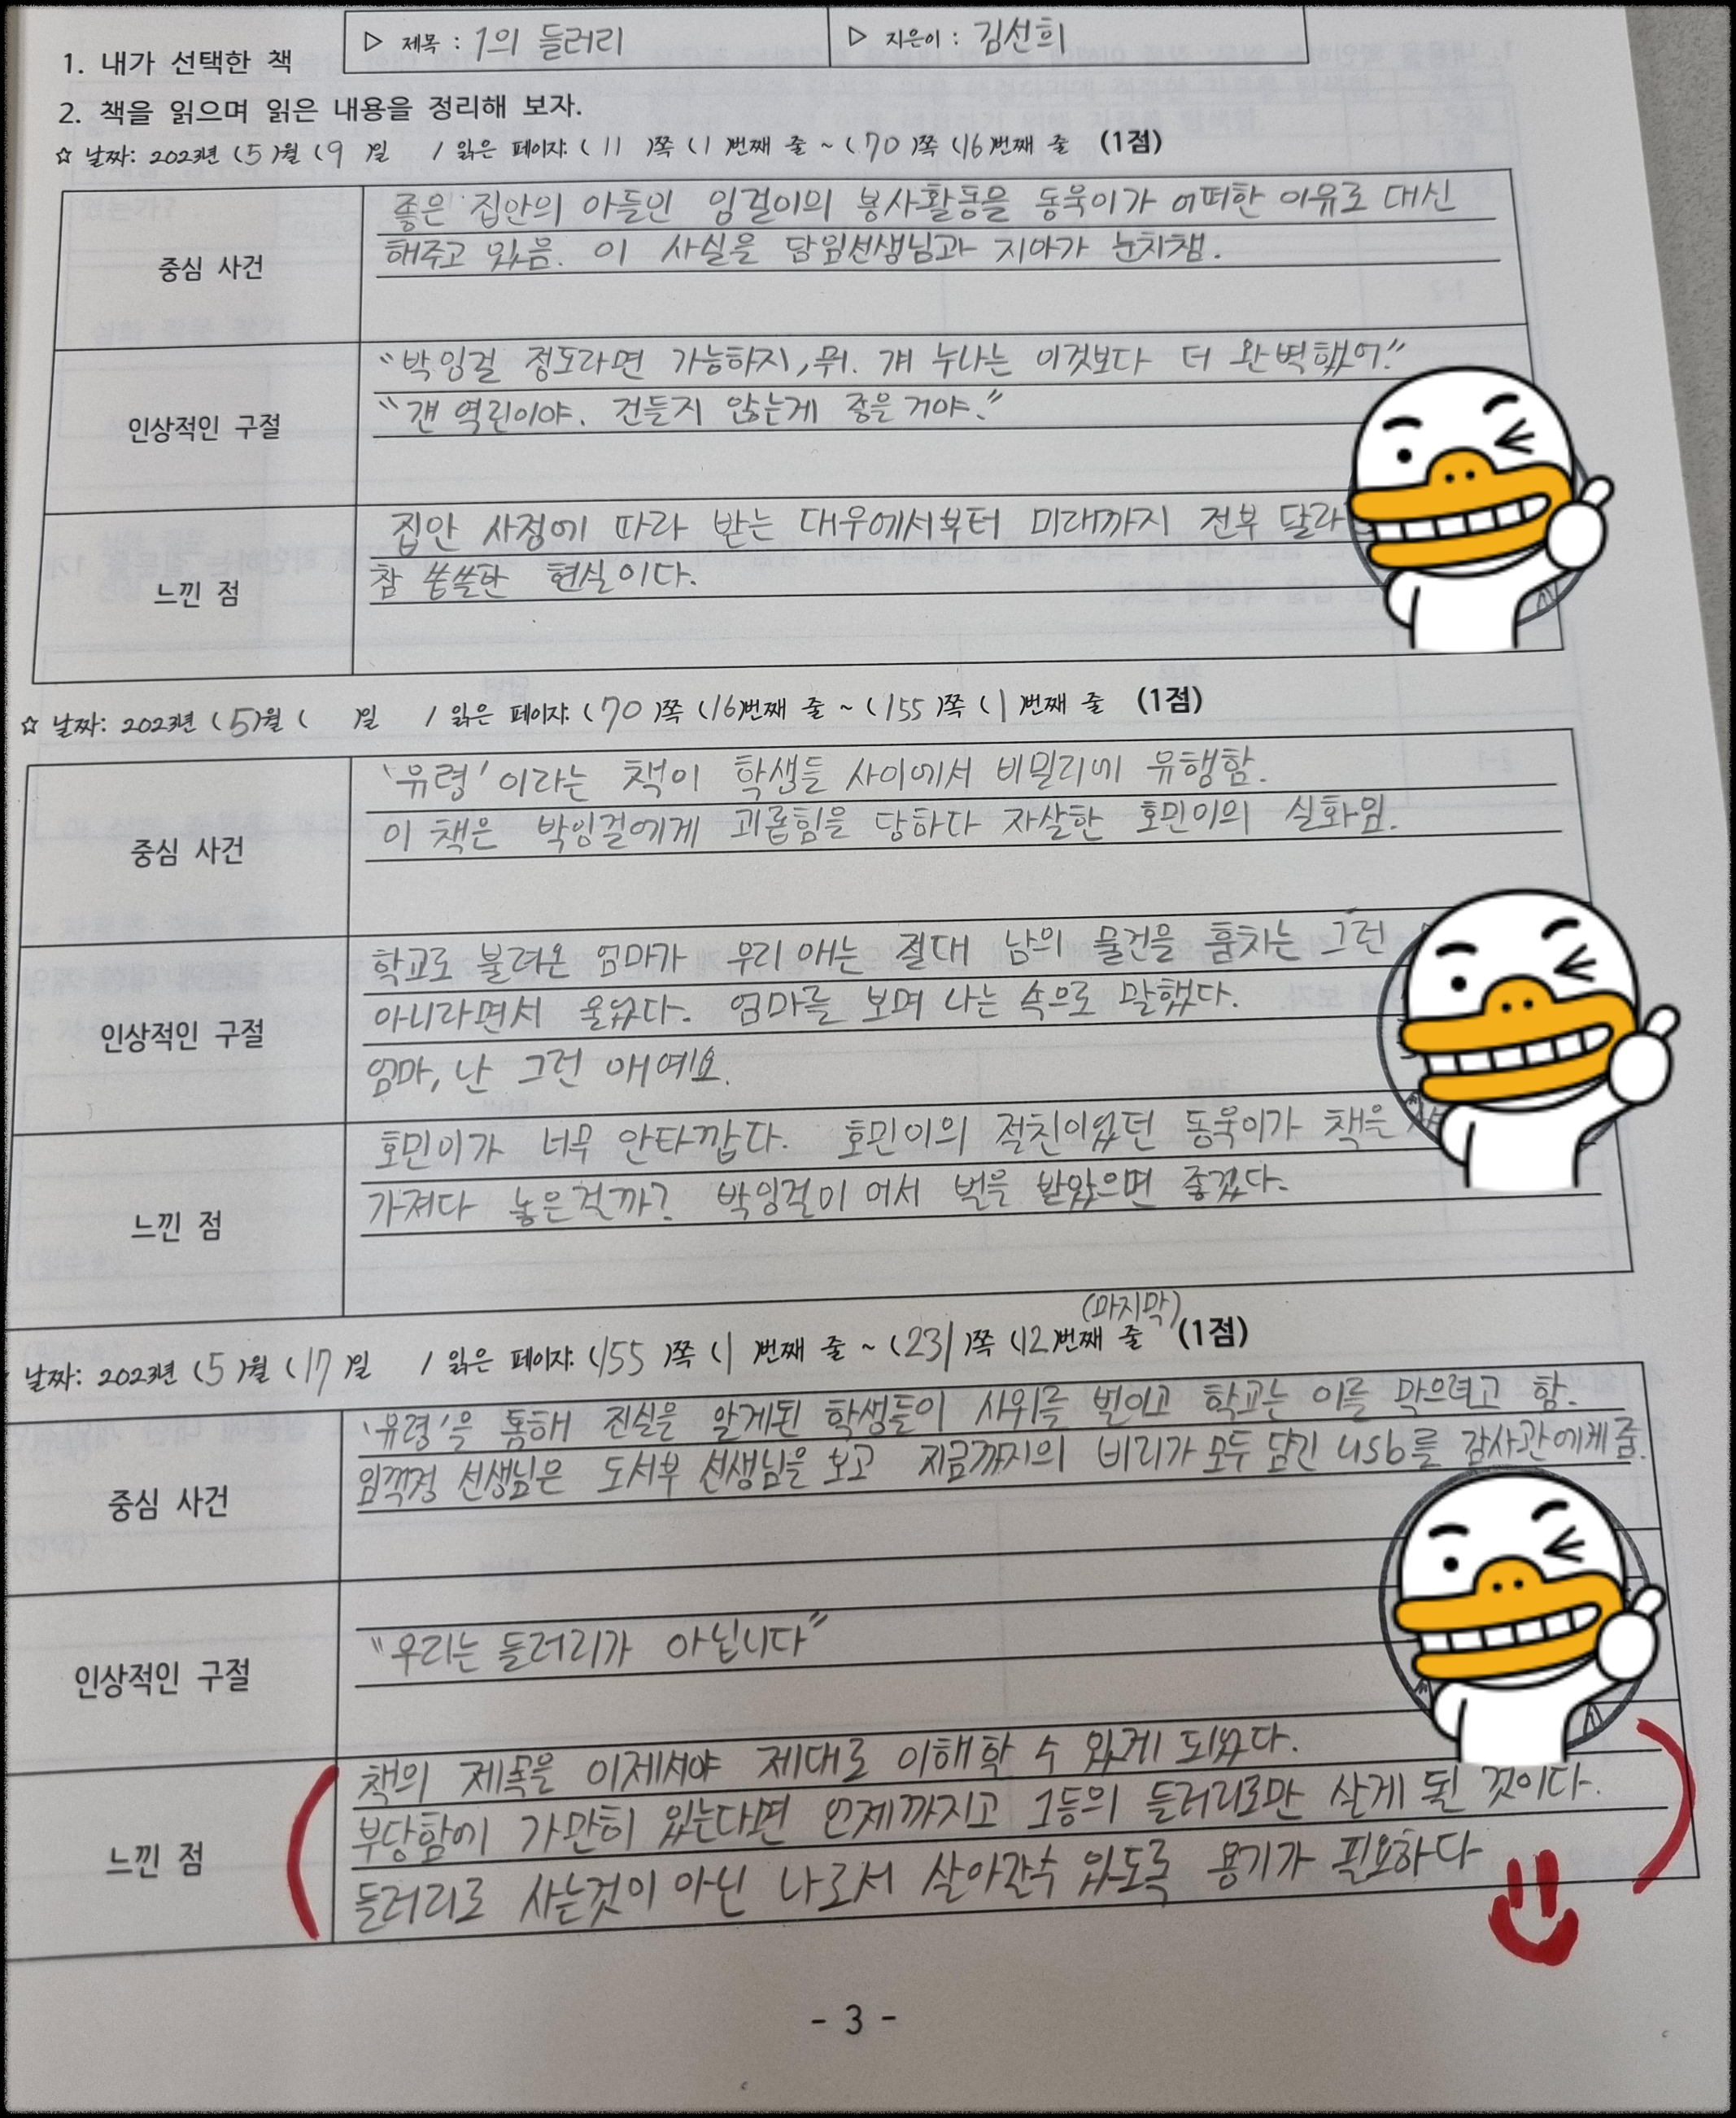 1. 내가 선택한 책
▷ 제목 : 1의 들러리
▷ 지은이 : 김선희
2. 책을 읽으며 읽은 내용을 정리해 보자.
☆ 날짜: 2023년 (5)월 (9)일 / 읽은 페이지: (11)쪽 (1)번째 줄 ~ (70)쪽 (16)번째 줄 (1점)
중심 사건
좋은 집안의 아들인 잉걸이의 봉사활동을 동욱이가 어떠한 이유로 대신
해주고 있음. 이 사실을 담임선생님과 지아가 눈치챔.
인상적인 구절
“박잉걸 정도라면 가능하지, 뭐. 걔 누나는 이것보다 더 완벽했어.”
“걘 역린이야. 건들지 않는게 좋을거야.”
느낀 점
집안 사정에 따라 받는 대우에서부터 미래까지 전부 달라
참 씁쓸한 현실이다.
☆ 날짜: 2023년 (5)월 ( )일 / 읽은 페이지: (70)쪽 (16)번째 줄 ~ (155)쪽 (1)번째 줄 (1점)
중심 사건
‘유령’이라는 책이 학생들 사이에서 비밀리에 유행함.
이 책은 박잉걸에게 괴롭힘을 당하다 자살한 호민이의 실화임.
인상적인 구절
학교로 불려온 엄마가 우리 애는 절대 남의 물건을 훔치는 그런
아니라면서 울었다. 엄마를 보며 나는 속으로 말했다.
엄마, 난 그런 애예요.
느낀 점
호민이가 너무 안타깝다. 호민이의 절친이었던 동욱이가 책은
가져다 놓은걸까? 박잉걸이 어서 벌을 받았으면 좋겠다.
(마지막)
날짜: 2023년 (5)월 (17)일 / 읽은 페이지: (155)쪽 (1)번째 줄 ~ (231)쪽 (12)번째 줄 (1점)
중심 사건
‘유령’을 통해 진실을 알게된 학생들이 시위를 벌이고 학교는 이를 막으려고 함.
임꺽정 선생님은 도서부 선생님을 보고 지금까지의 비리가 모두 담긴 usb를 감사관에게 줌.
인상적인 구절
“우리는 들러리가 아닙니다”
느낀 점
책의 제목을 이제서야 제대로 이해할 수 있게 되었다.
부당함에 가만히 있는다면 언제까지고 1등의 들러리로만 살게 될 것이다.
들러리로 사는것이 아닌 나로서 살아갈수 있도록 용기가 필요하다
- 3 -